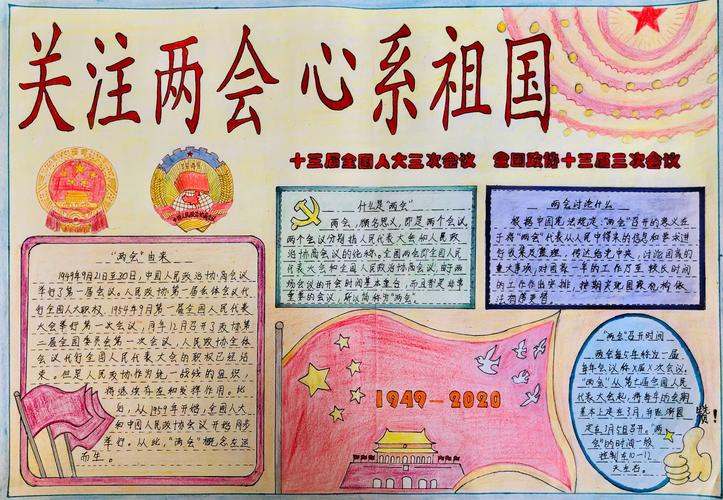 关注两会 心系祖国
十三届全国人大三次会议 全国政协十三届三次会议
"两会"由来
1949年9月21日至30日,中国人民政治协商会议
举行了第一届会议。人民政协第一届全体会议代
行全国人大职权,1954年9月第一届全国人民代表
大会举行第一次会议,同年12月召开了政协第
二届全国委员会第一次会议,人民政协全体
会议代行全国人民代表大会的职权已经结
束,但是人民政协作为统一战线的组织,
将继续存在和发挥作用。此
后,从1959年开始,全国人大
和中国人民政协会议开始同步
举行。从此,"两会"概念应运
而生。
什么是"两会"
两会,顾名思义,即是两个会议。
两个会议分别指人民代表大会和人民政
治协商会议的统称。全国两会即全国人民
代表大会和全国人民政治协商会议,由于两
场会议的开会时间基本重合,而且都是非常
重要的会议,所以简称为"两会"。
两会讨论什么
根据中国宪法规定:"两会"召开的意义在
于将"两会"代表从人民中得来的信息和要求进
行收集及整理,传达给党中央,讨论国家的
重大事项,对国家一年的工作乃至较长时间
的工作作出安排,
1949—2020
"两会"召开时间
两会每5年称为一届
每年会议称X届X次会议。
"两会"从第七届全国人民
代表大会起,将每年的会期
基本上定在3月,
定在3月5日召开。"两
会"的时间一般
控制在10—12
天左右。